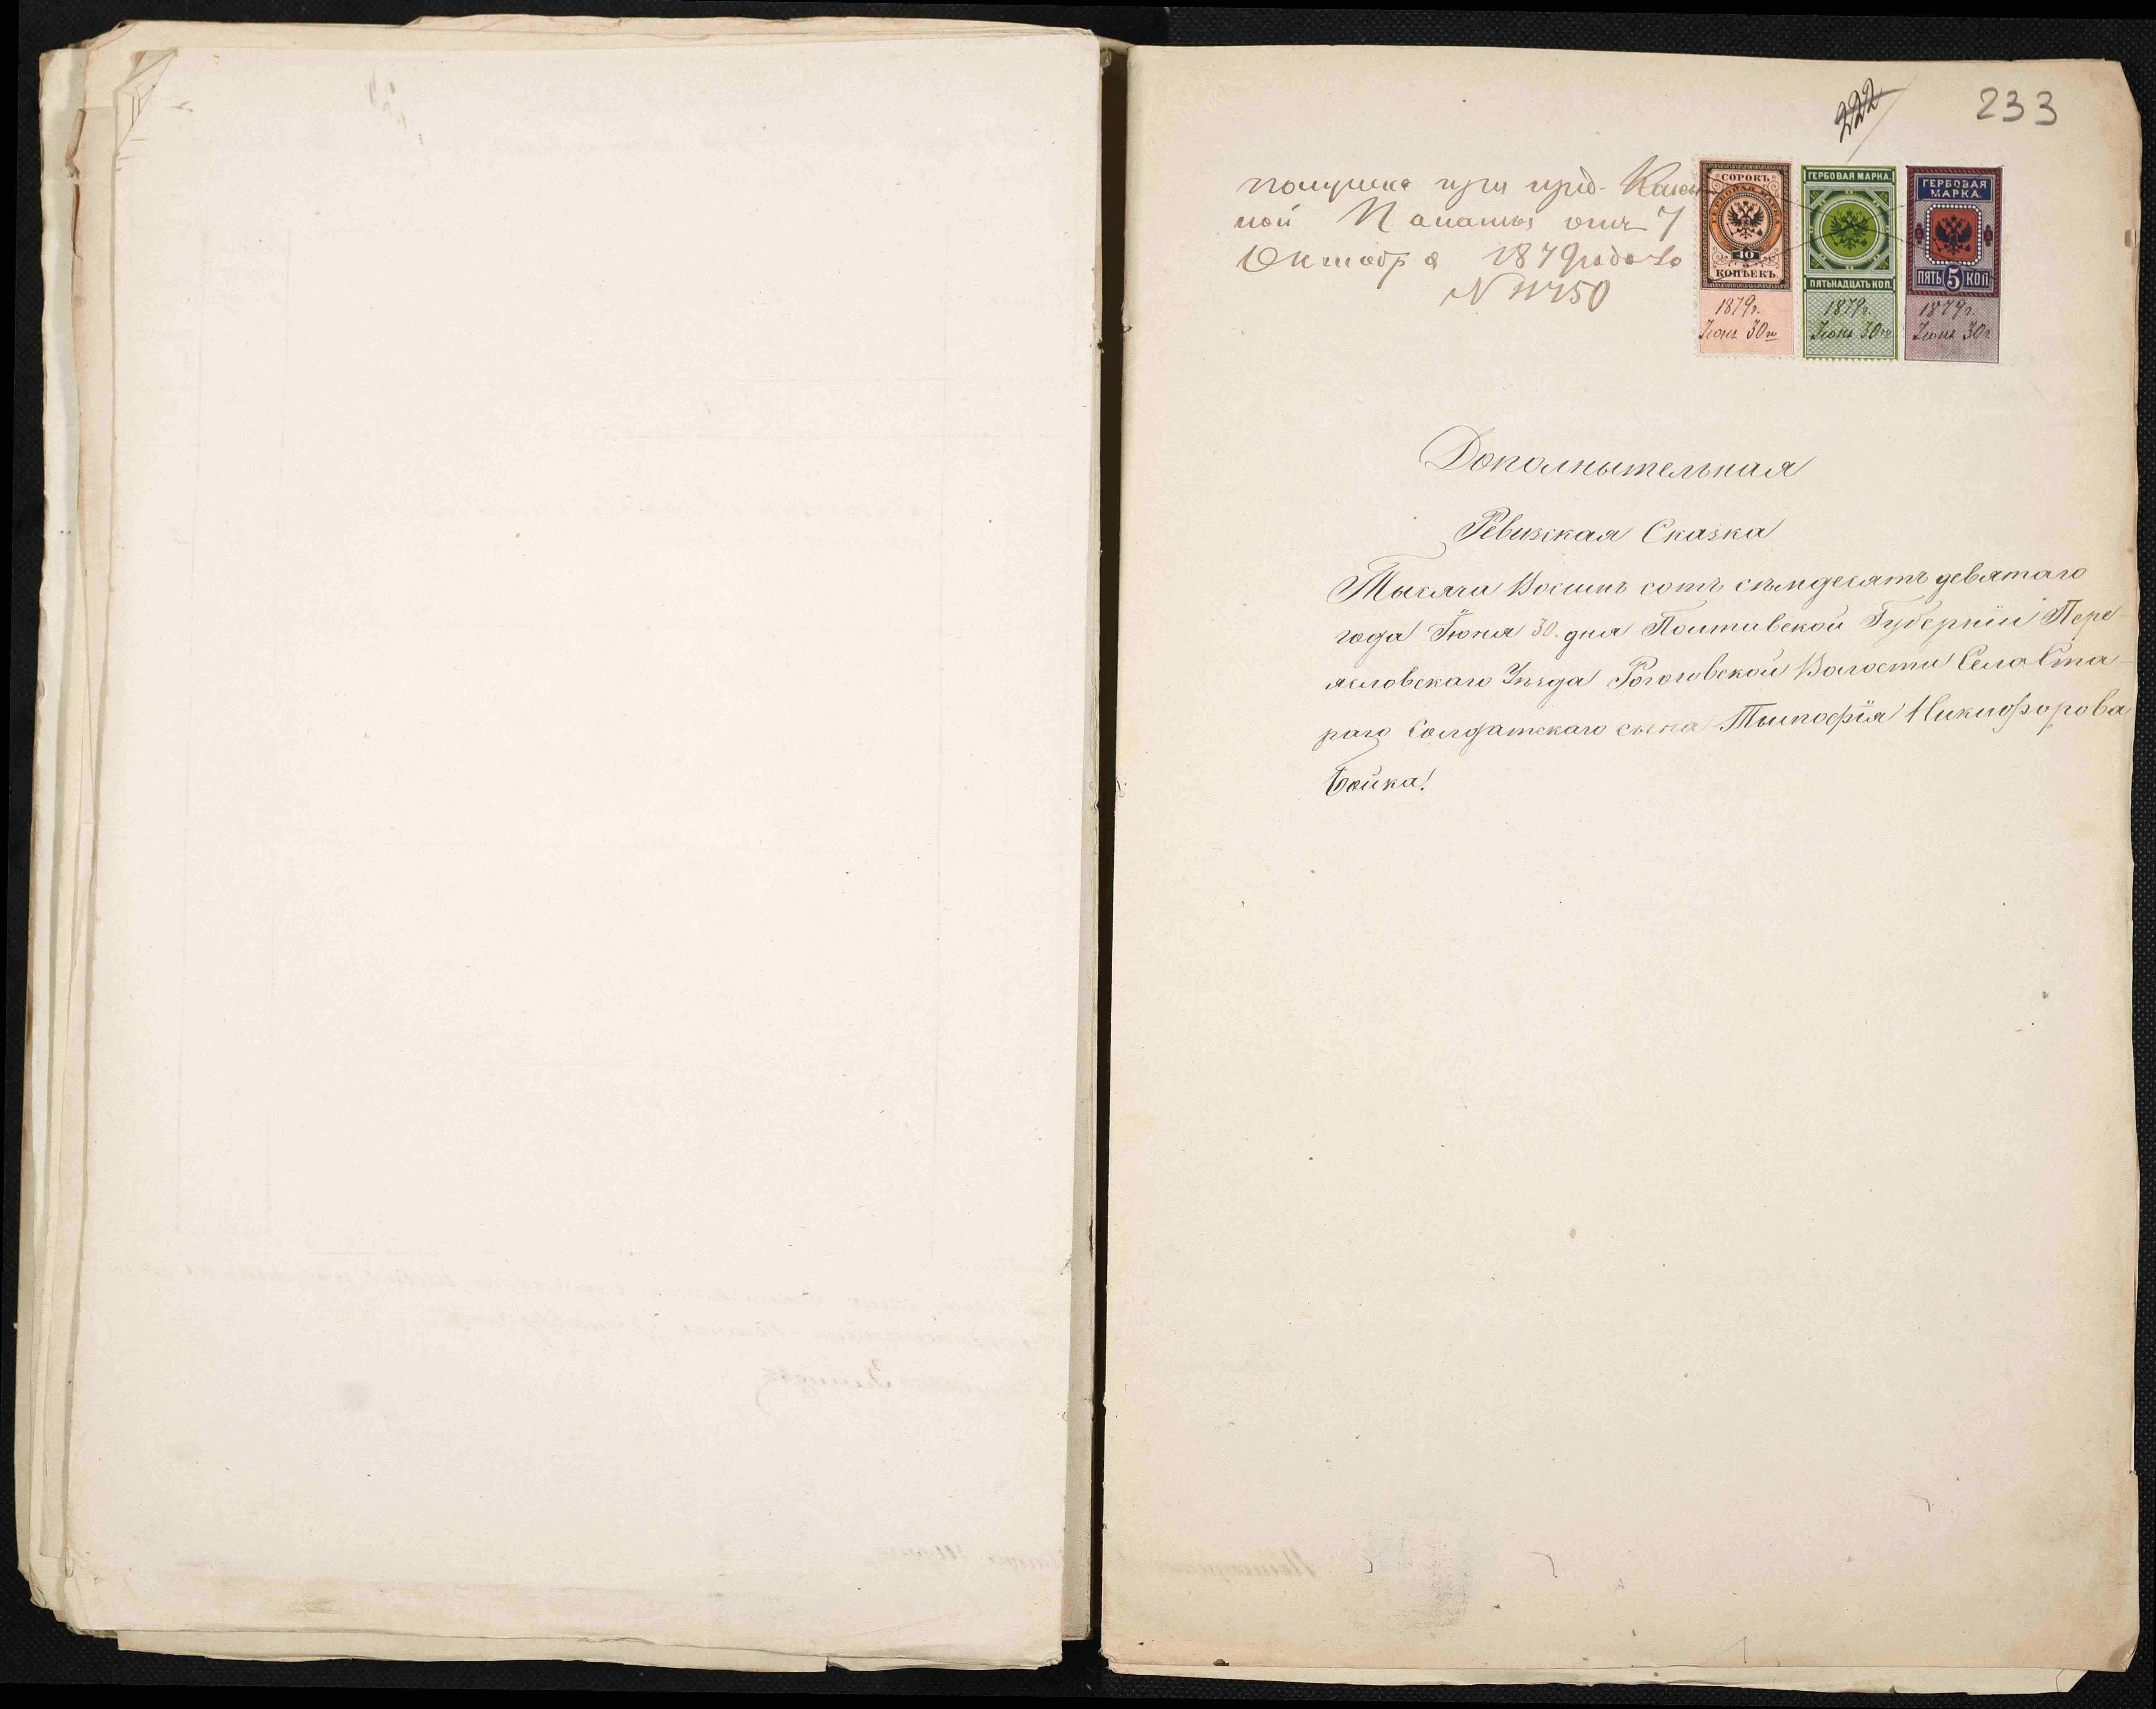 222
233
получена при пред. Казен
ной Палаты отъ 7
Октября 1879 года за
N 11450
СОРОКЪ
ГЕРБОВАЯ МАРКА
40
КОПѢЕКЪ
1879г.
Июня 30го
ГЕРБОВАЯ МАРКА.
ПЯТЬНАДЦАТЬ КОП.
1879г.
Июня 30го
ГЕРБОВАЯ
МАРКА.
ПЯТЬ 5 КОП
1879г.
Июня 30г.
Дополнытельная
Ревизкая Сказка
Тысяча Восимъ сотъ съмдесятъ девятаго
года Іюня 30. дня Полтавской Губерніи Пере-
яславскаго Уѣзда Рогозовской Волости Села Ста-
раго Солдатскаго сына Тымофія Никифорова
Бойка.